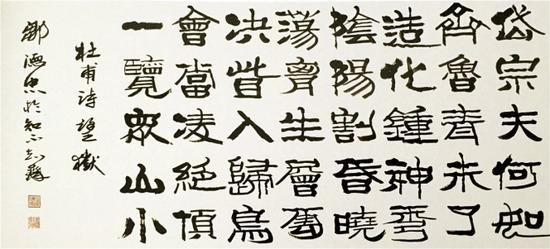 岱宗夫何如
齊魯青未了
造化鍾神秀
陰陽割昏曉
蕩胷生層雲
決眥入歸鳥
會當凌絕頂
一覽眾山小
杜甫詩望嶽
鄒德忠於知不